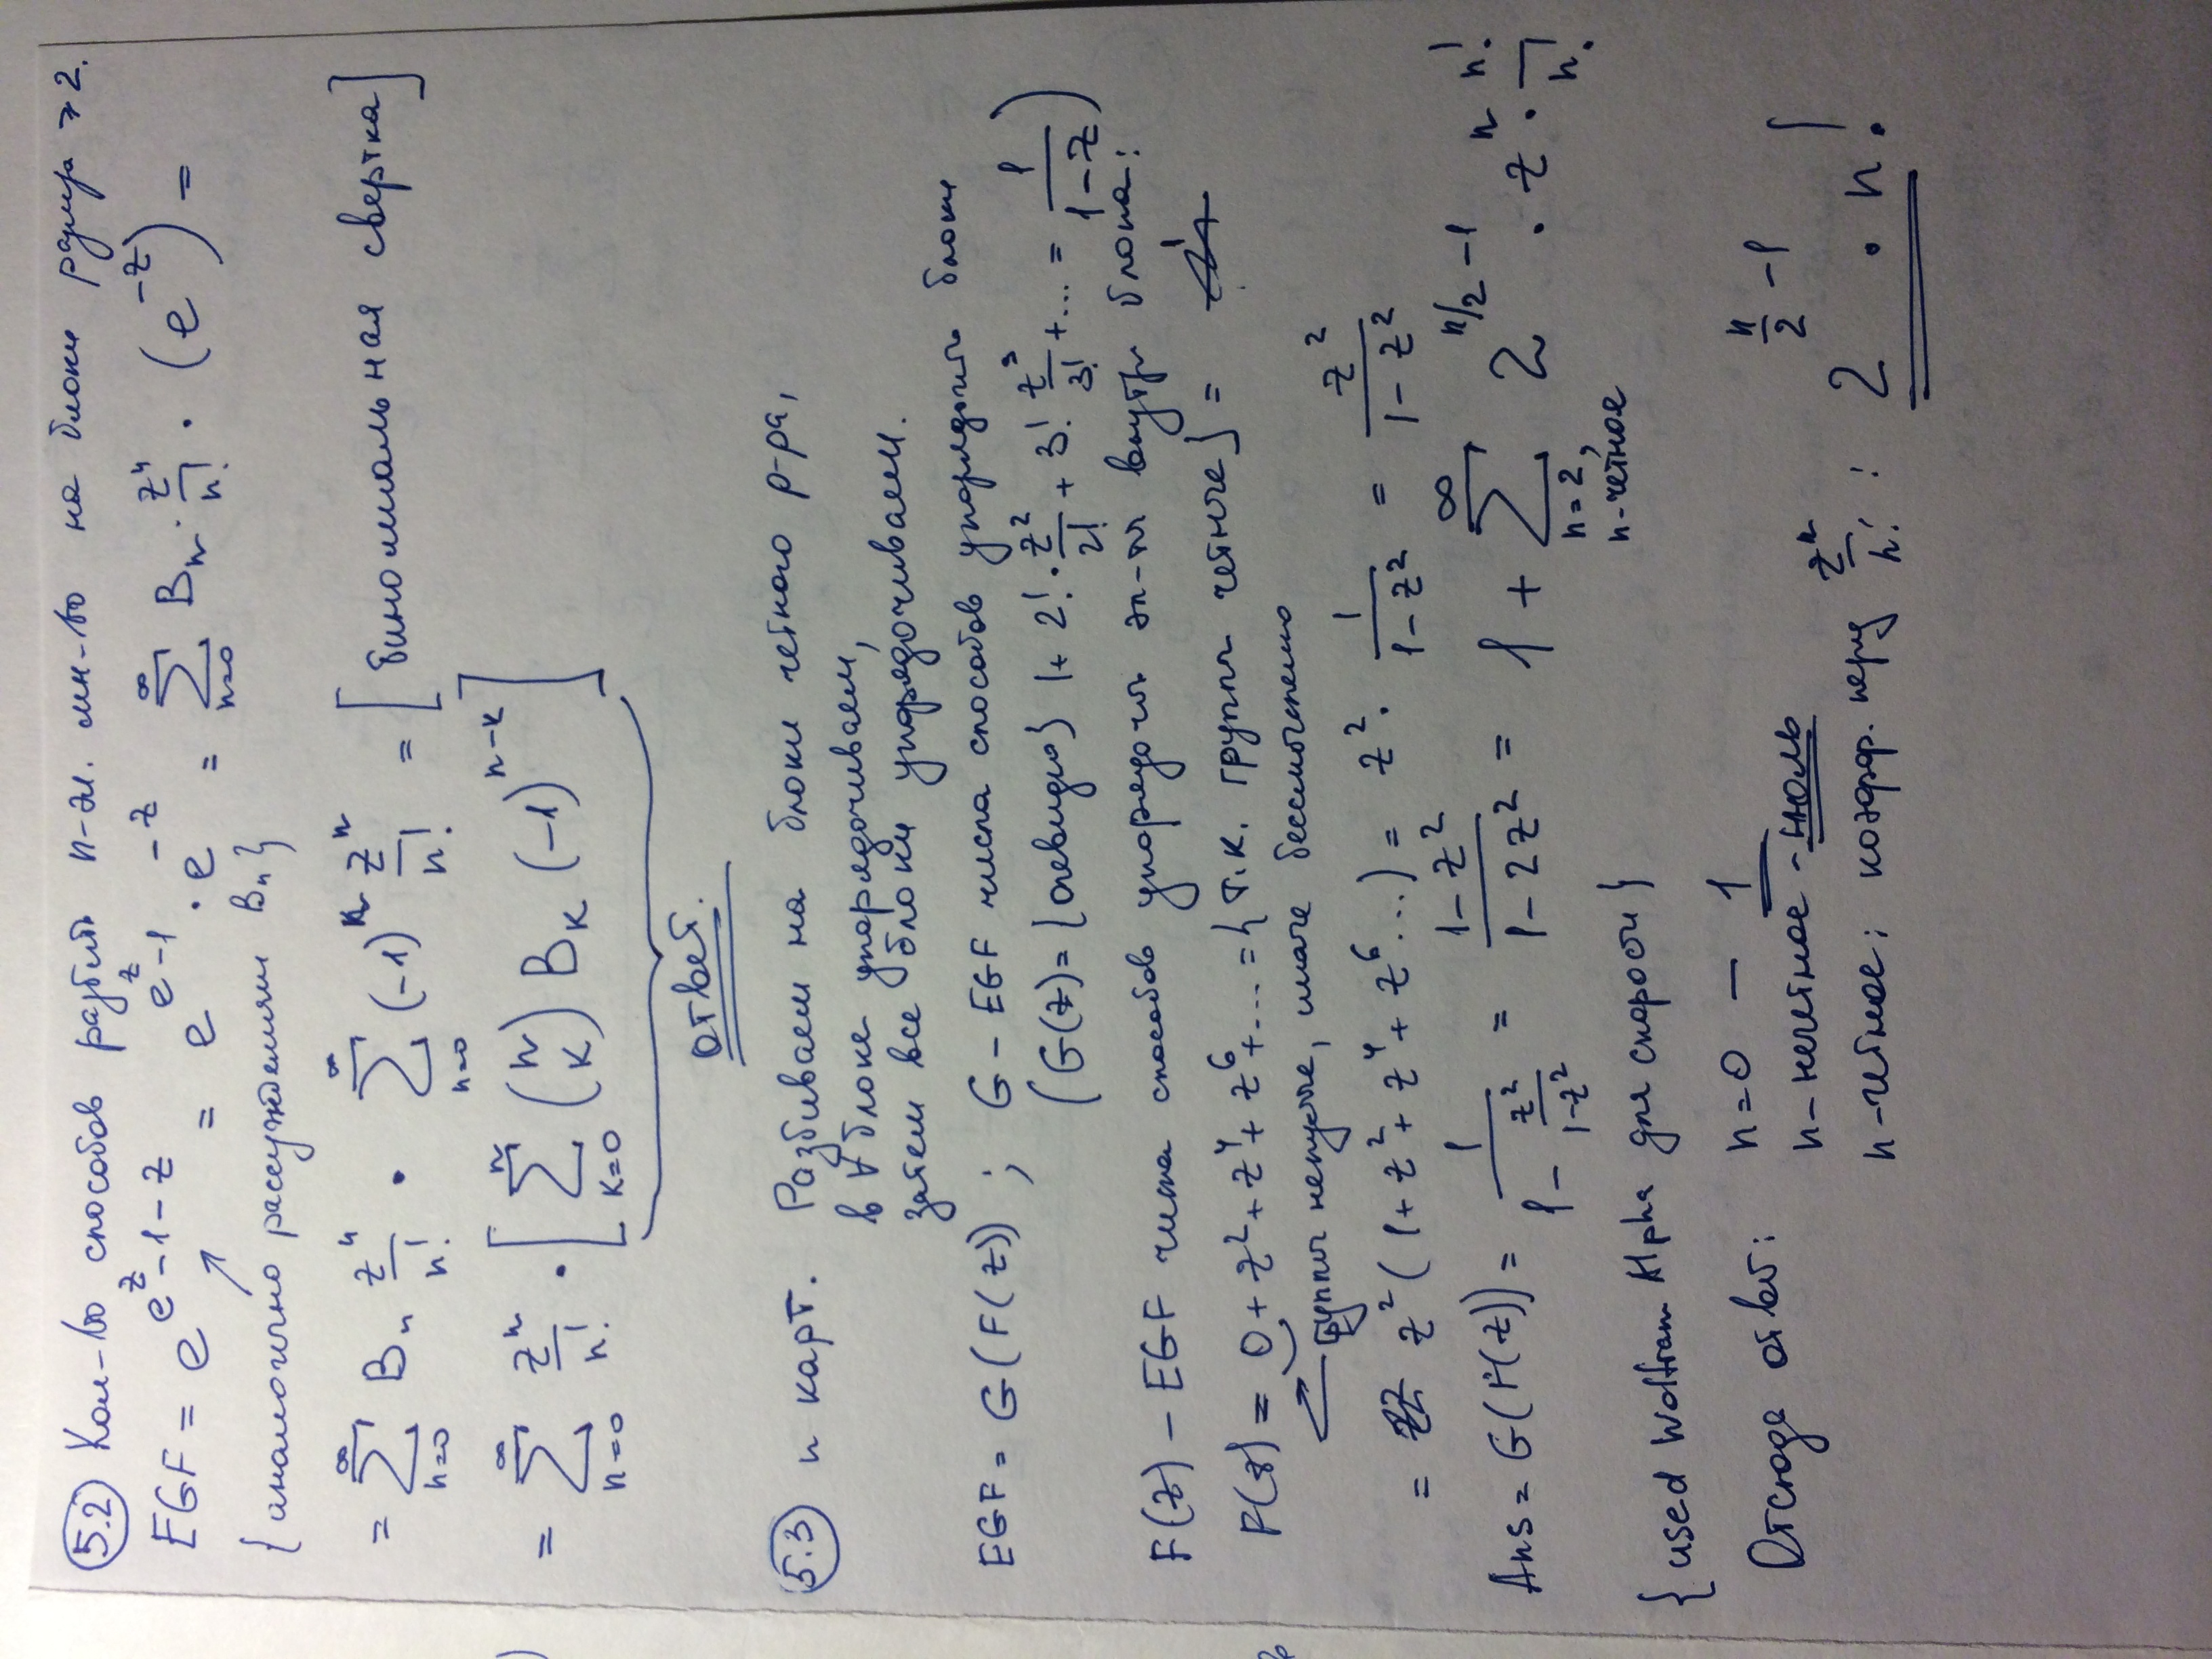 5.2 Кол-во способов разбить n-эл. мн-во на блоки размера ≥2.
EGF = e^{e^z-1-z} = e^{e^z-1} · e^{-z} = ∑_{n=0}^{∞} B_n · z^n/n! · (e^{-z}) =
{аналогично рассуждениям B_n}
= ∑_{n=0}^{∞} B_n z^n/n! · ∑_{n=0}^{∞} (-1)^n z^n/n! = [биномиальная свертка]
= ∑_{n=0}^{∞} z^n/n! · [∑_{k=0}^{n} (n k) B_k (-1)^{n-k}]
ответ.
5.3 n карт. Разбиваем на блоки четного р-ра,
в ∀ блоке упорядочиваем,
затем все блоки упорядочиваем.
EGF = G(F(z)) ; G - EGF числа способов упорядочить блоки
(G(z) = {очевидно} 1 + 2! · z^2/2! + 3! z^3/3! + ... = 1/(1-z))
F(z) - EGF числа способов упорядочить эл-ты внутри блока:
F(z) = 0 + z^2 + z^4 + z^6 + ... = {т.к. группы четные} =
группы непустые, иначе бессмысленно
= z^2 (1 + z^2 + z^4 + z^6 ...) = z^2 · 1/(1-z^2) = z^2/(1-z^2)
Ans = G(F(z)) = 1/(1 - z^2/(1-z^2)) = (1-z^2)/(1-2z^2) = 1 + ∑_{n=2, n-четное}^{∞} 2^{n/2-1} · z^n · n!/n!
{used Wolfram Alpha для скорости}
Отсюда ответ: n=0 - 1
n-нечетное - ноль
n-четное: коэфф. перед z^n/n! : 2^{n/2-1} · n!